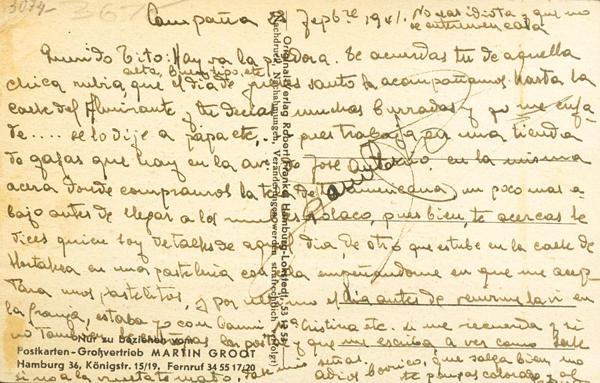 3074
367
Campaña 2 Sepbre 1941. No seas idiota y que no se enteren en casa
Querido Tito: Hay va la. Te acuerdas tu de aquella
alta, buen tipo, etc.
chica rubia que el dia de jueves santo la acompañamos hasta la
calle del Almirante y tu decias muchas burradas y yo me enfa-
de.... se lo dije a papa etc, pues trabaja en una tienda
de gafas que hay en la avenida José Antonio en la misma
acera donde compramos la tela de la americana un poco mas a-
bajo antes de llegar a los, pues bien, te acercas le
dices quien soy detalles de aquel dia, de otro que estube en la calle de
Hortaleza en una pasteleria con ella empeñandome en que me acep-
tara unos pastelitos, y por ultimo el dia antes de venirme la vi en
la franja, estaba yo con Cristina etc. si me recuerda y si
no tambien le enseñas la postal y que me escriba a ver como sale
si no a la vuelta te mato, señas.
adios borrico, que salga bien no
te pongas colorado
Original Verlag Robert Franke, Hamburg-Lokstedt, 53 12 53
Nachdruck, Nachahmungen, Veränderungen werden strafrechtlich verfolgt
Nur zu beziehen vom
Postkarten-Großvertrieb MARTIN GROOT
Hamburg 36, Königstr. 15/19. Fernruf 34 55 17/20